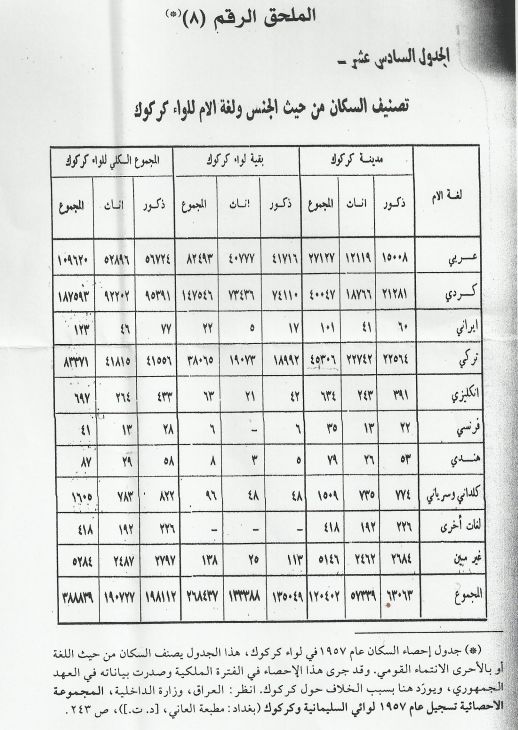 الملحق الرقم (٨)(*)
الجدول السادس عشر –
تصنيف السكان من حيث الجنس ولغة الام للواء كركوك
لغة الام مدينة كركوك بقية لواء كركوك المجموع الكلي للواء كركوك
ذكور اناث المجموع ذكور اناث المجموع ذكور اناث المجموع
عربي ١٥٠٠٨ ١٢١١٩ ٢٧١٢٧ ٤١٧١٦ ٤٠٧٧٧ ٨٢٤٩٣ ٥٦٧٢٤ ٥٢٨٩٦ ١٠٩٦٢٠
كردي ٢١٢٨١ ١٨٧٦٦ ٤٠٠٤٧ ٧٤١١٠ ٧٣٤٣٦ ١٤٧٥٤٦ ٩٥٣٩١ ٩٢٢٠٢ ١٨٧٥٩٣
ايراني ٦٠ ٤١ ١٠١ ١٧ ٥ ٢٢ ٧٧ ٤٦ ١٢٣
تركي ٢٢٥٦٤ ٢٢٧٤٢ ٤٥٣٠٦ ١٨٩٩٢ ١٩٠٧٣ ٣٨٠٦٥ ٤١٥٥٦ ٤١٨١٥ ٨٣٣٧١
انكليزي ٣٩١ ٢٤٣ ٦٣٤ ٤٢ ٢١ ٦٣ ٤٣٣ ٢٦٤ ٦٩٧
فرنسي ٢٢ ١٣ ٣٥ ٦ – ٦ ٢٨ ١٣ ٤١
هندي ٥٣ ٢٦ ٧٩ ٥ ٣ ٨ ٥٨ ٢٩ ٨٧
كلداني وسرياني ٧٧٤ ٧٣٥ ١٥٠٩ ٤٨ ٤٨ ٩٦ ٨٢٢ ٧٨٣ ١٦٠٥
لغات أخرى ٢٢٦ ١٩٢ ٤١٨ – – – ٢٢٦ ١٩٢ ٤١٨
غير مبين ٢٦٨٤ ٢٤٦٢ ٥١٤٦ ١١٣ ٢٥ ١٣٨ ٢٧٩٧ ٢٤٨٧ ٥٢٨٤
المجموع ٦٣٠٦٣ ٥٧٣٣٩ ١٢٠٤٠٢ ١٣٥٠٤٩ ١٣٣٣٨٨ ٢٦٨٤٣٧ ١٩٨١١٢ ١٩٠٧٢٧ ٣٨٨٨٣٩
(*) جدول إحصاء السكان عام ١٩٥٧ في لواء كركوك، هذا الجدول يصنف السكان من حيث اللغة
أو بالأحرى الانتماء القومي. وقد جرى هذا الإحصاء في الفترة الملكية وصدرت بياناته في العهد
الجمهوري، ويورَد هنا بسبب الخلاف حول كركوك. انظر: العراق، وزارة الداخلية، المجموعة
الاحصائية تسجيل عام ١٩٥٧ لوائي السليمانية وكركوك (بغداد: مطبعة العاني، [د. ت.])، ص ٢٤٣.